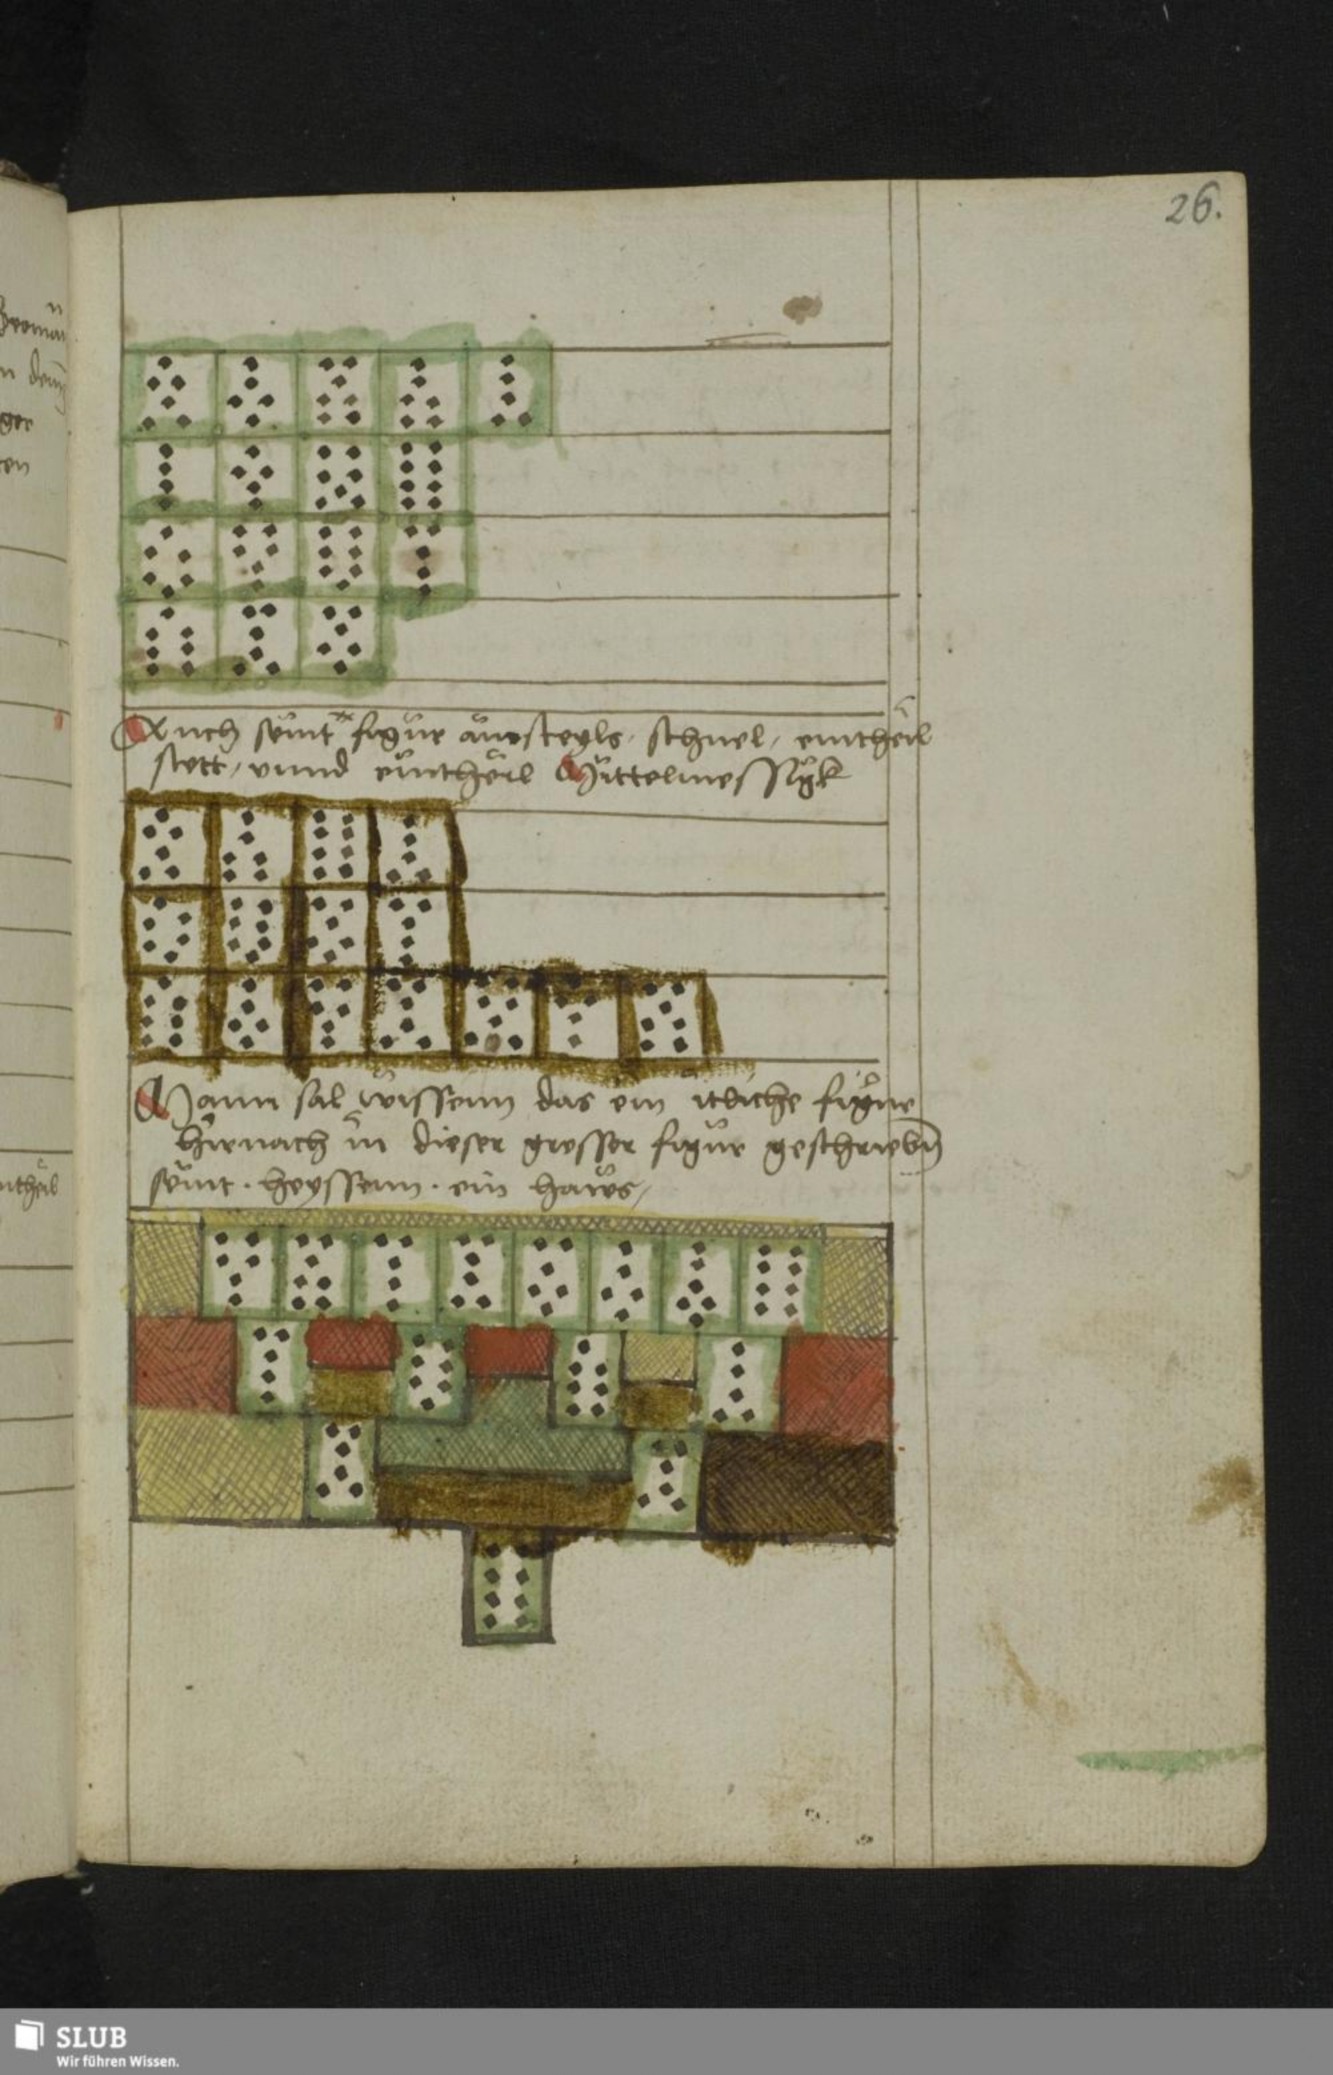 26.
Auch seint figur aussteyls schnel, eintheil
stett, vnnd eintheil Mittelmessigk
Mann sal wissenn das ein itliche figur
hirnach in dieser grosser figur geschriebn
seint · heyssenn · ein haws,
ger
ntheil
SLUB
Wir führen Wissen.